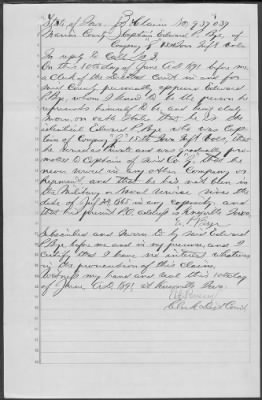 State of Iowa } Claim No 937039
Marion County } Captain Edward P. Bye of
Company G 15th Iowa Inft Vols
In reply to call No 3
On this 10th day of June A.D. 1891 before me
a Clerk of the District Court in and for
said County personally appears Edward
P. Bye, whom I know to be the person he
represents himself to be, and being duly
sworn, on oath states that he is the
identical Edward P. Bye who was Cap-
tain of Company G 15th Iowa Inft Vols that
he served as and was gradually pro-
moted to Captain of said Co. G, that he
never served in any other Company or
organization and that he has not been in
the Military or Naval service since the
date of July 24 1865 in any capacity and
that his present P.O. address is Knoxville Iowa.
E. P. Bye
Subscribed and sworn to by said Edward
P. Bye before me and in my presence, and I
certify that I have no interest whatever
in the prosecution of this claim.
Witness my hand and seal this 10th day
of June A.D. 1891 at Knoxville Iowa.
Clerk Dist Court